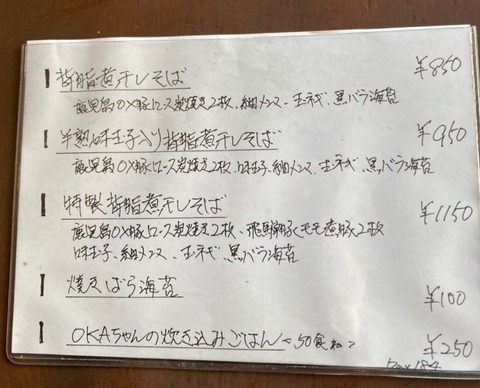 背脂煮干しそば ¥850
鹿児島OX豚ロース炭焼き2枚、細メンマ、玉ネギ、黒バラ海苔
半熟味玉子入り背脂煮干しそば ¥950
鹿児島OX豚ロース炭焼き2枚、味玉子、細メンマ、玉ネギ、黒バラ海苔
特製背脂煮干しそば ¥1150
鹿児島OX豚ロース炭焼き2枚、飛騨豚モモ煮豚2枚
味玉子、細メンマ、玉ネギ、黒バラ海苔
焼きばら海苔 ¥100
OKAちゃんの炊き込みごはん 50食 ¥250